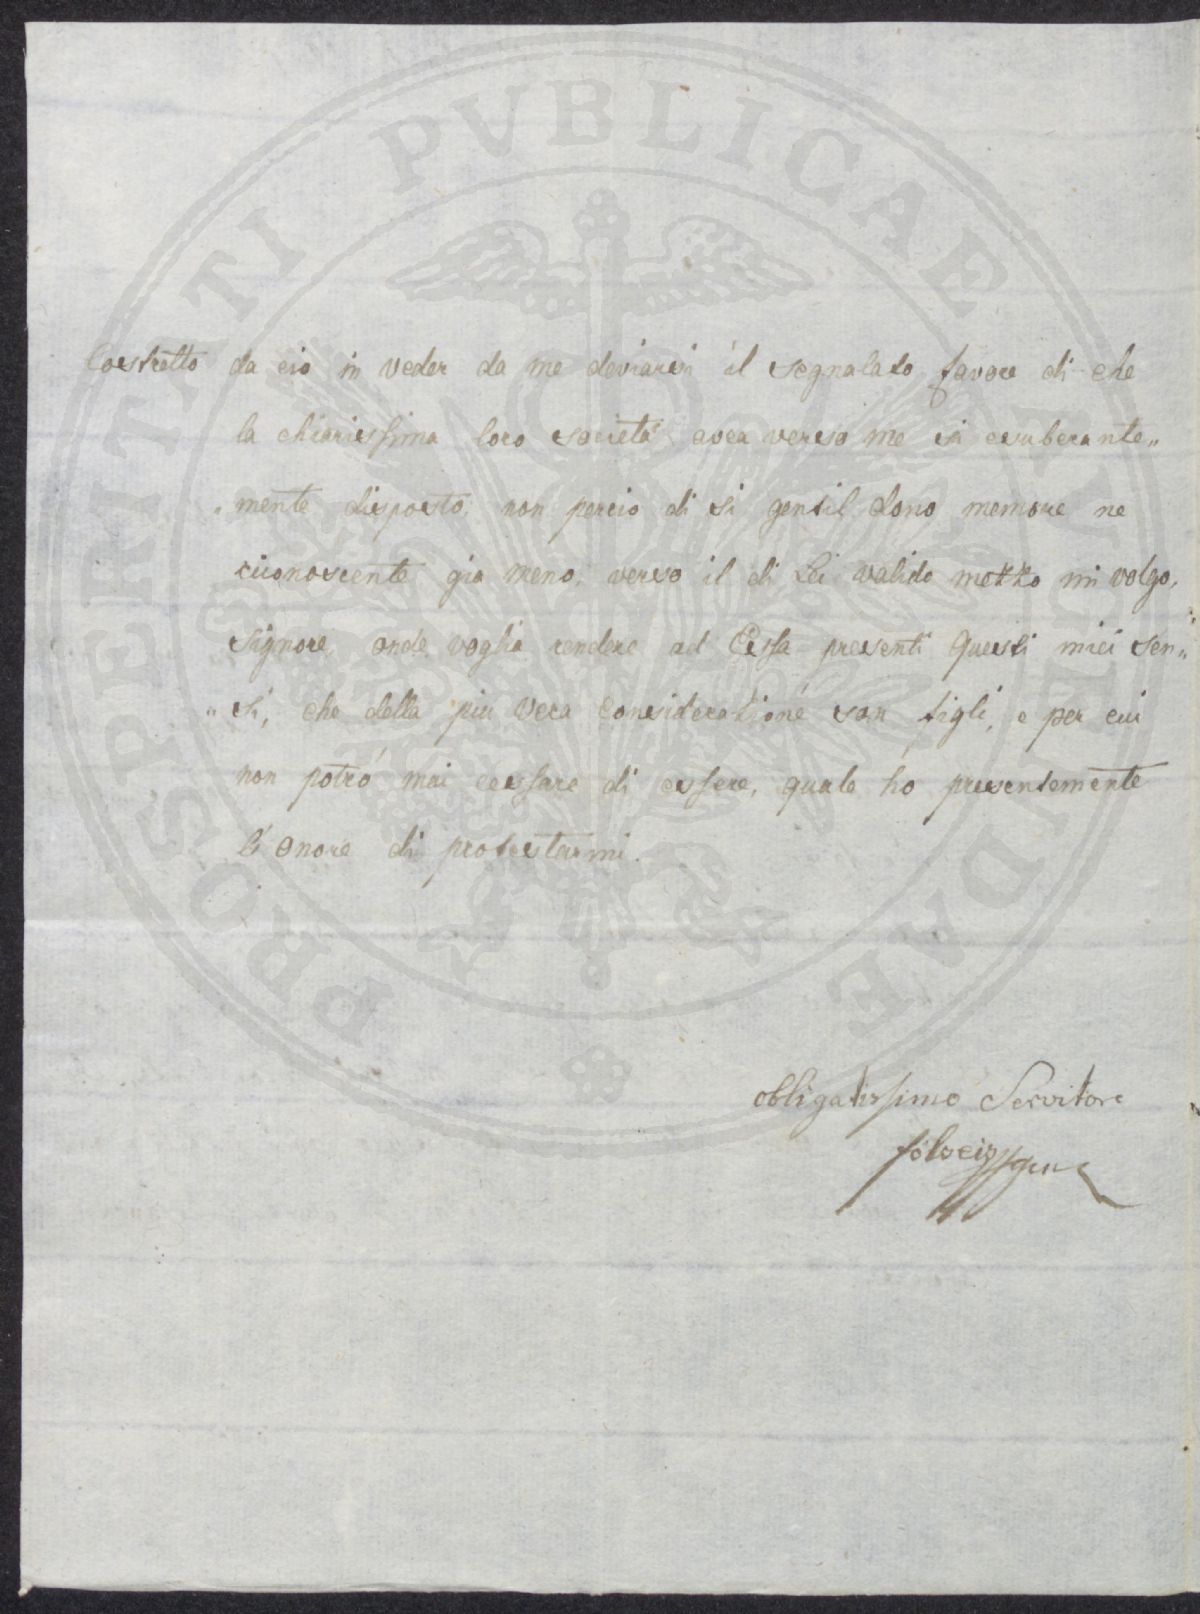 PROSPERITATI PVBLICAE AVGVNDAE
Costretto da cio in veder da me deviarsi il segnalato favore di che
la chiarissima loro societá avea verso me si esuberante„
„mente disposto, non percio di si gentil dono memore ne
riconoscente gia meno, verso il di Lei valido mezzo mi volgo,
Signore, onde voglia rendere ad Essa presenti questi miei sen„
„si, che della piú vera considerazione son figli, e per cui
non potró mai cessare di essere, quale ho presentemente
l'onore di protestarmi.
obligatissimo Servitore